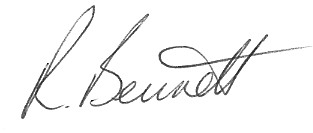 R. Bennett